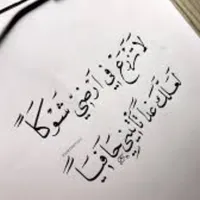 لَا تَزْرَعْ فِي أَرْضِي شَوْكَاً
لَعَلَّكَ غَدَاً تَأْتِينِي حَافِيَاً